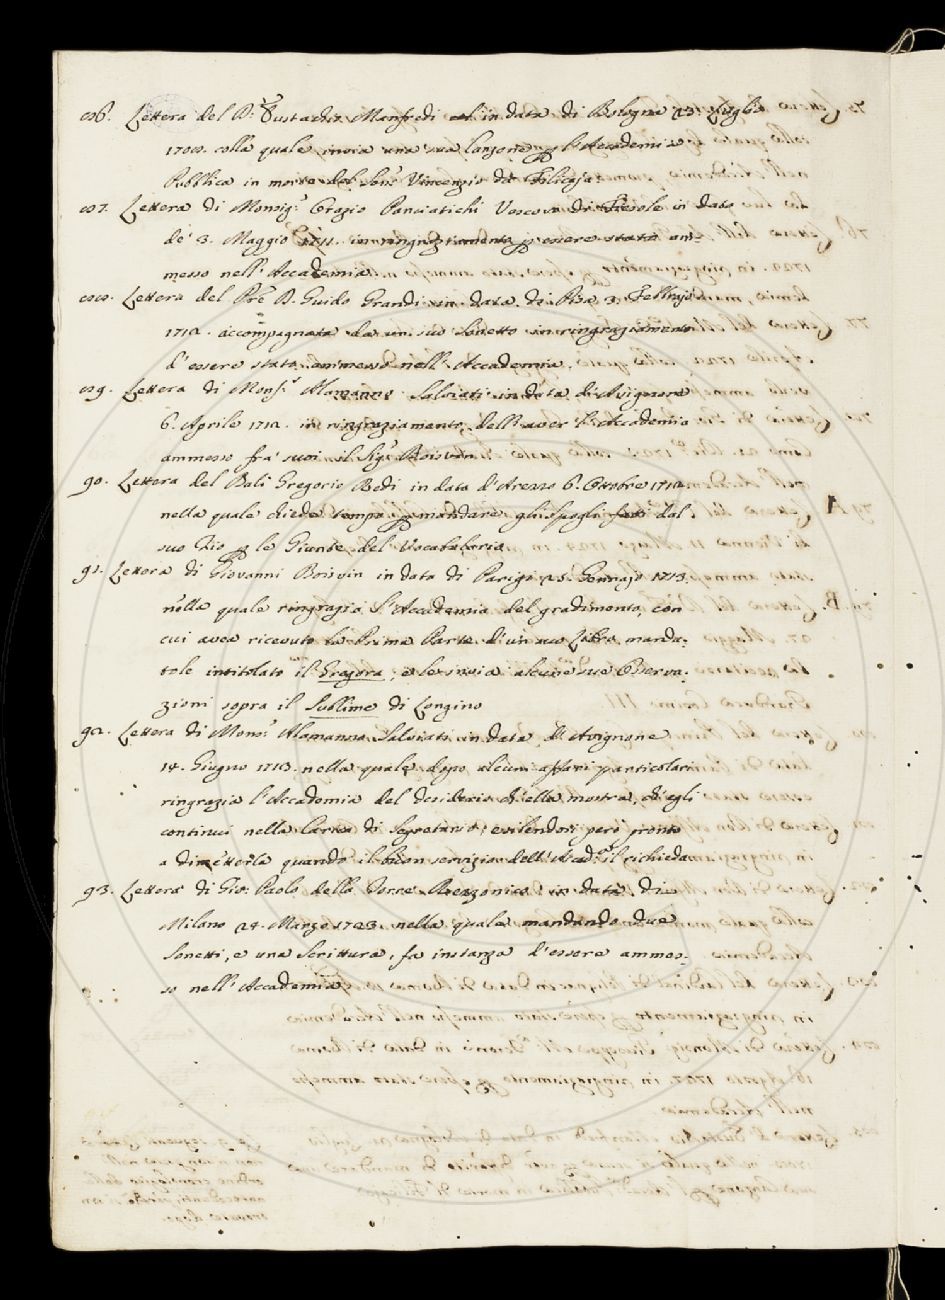 86. Lettera del P. Eustachio Manfredi in data di Bologna 23. Luglio
1708. colla quale invia una sua Canzone p l'Accademia
Pubblica in morte del Sen.e Vincenzio da Filicaja.
87. Lettera di Monsig.r Orazio Panciatichi Vescovo di Fiesole in data
de' 3. Maggio 1711. in ringraziamento p essere stato am=
messo nell'Accademia.
88. Lettera del Pre D. Guido Grandi in data di Pisa 3. Febbrajo
1712. accompagnata da un suo Sonetto in ringraziamento
d'essere stato ammesso nell'Accademia.
89. Lettera di Mons.r Alamanno Salviati in data di Avignone
6. Aprile 1712. in ringraziamento, dell'aver l'Accademia
ammesso fra' suoi il Sig.r Boisvin
90. Lettera del Balì Gregorio Redi in data d'Arezzo 6. Ottobre 1712
nella quale chiede tempo p mandare gli spogli fatti dal
suo Zio p le Giunte del Vocabolario
91. Lettera di Giovanni Boisvin in data di Parigi 25. Gennajo 1713.
nella quale ringrazia l'Accademia del gradimento, con
cui avea ricevuto la Prima Parte d'un suo Libro manda=
tole intitolato il Gregora, e le invia alcune sue Osserva=
zioni sopra il Sublime di Longino
92. Lettera di Mons.r Alamanno Salviati in data d'Avignone
14. Giugno 1713. nella quale dopo alcuni affari particolari
ringrazia l'Accademia del desiderio ch'ella mostra, ch'egli
continui nella Carica di Segretario, esibendosi però pronto
a dimetterla quando il buon servizio dell'Accad.a il richieda
93. Lettera di Gio: Paolo della Torre Rezzonico in data di
Milano 24. Marzo 1723. nella quale mandando due
Sonetti, e una Scrittura, fa instanza d'essere ammes=
so nell'Accademia